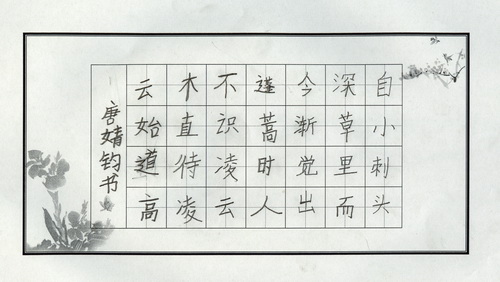 自小刺头
深草里而
今渐觉出
蓬蒿时人
不识凌云
木直待凌
云始道高
唐婧钧书